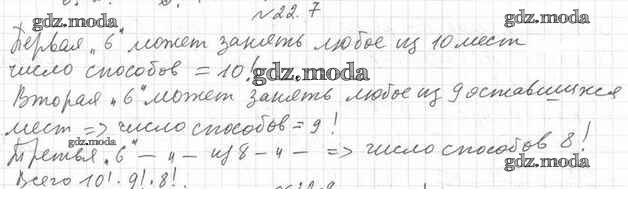 №22.7
gdz.moda
Первая „6" может занять любое из 10 мест
число способов = 10! gdz.moda
Вторая „6" может занять любое из 9 оставшихся
мест => число способов = 9!
gdz.moda
Третья „6" — „ — из 8 — „ — => число способов 8!
Всего 10! · 9! · 8!
gdz.moda